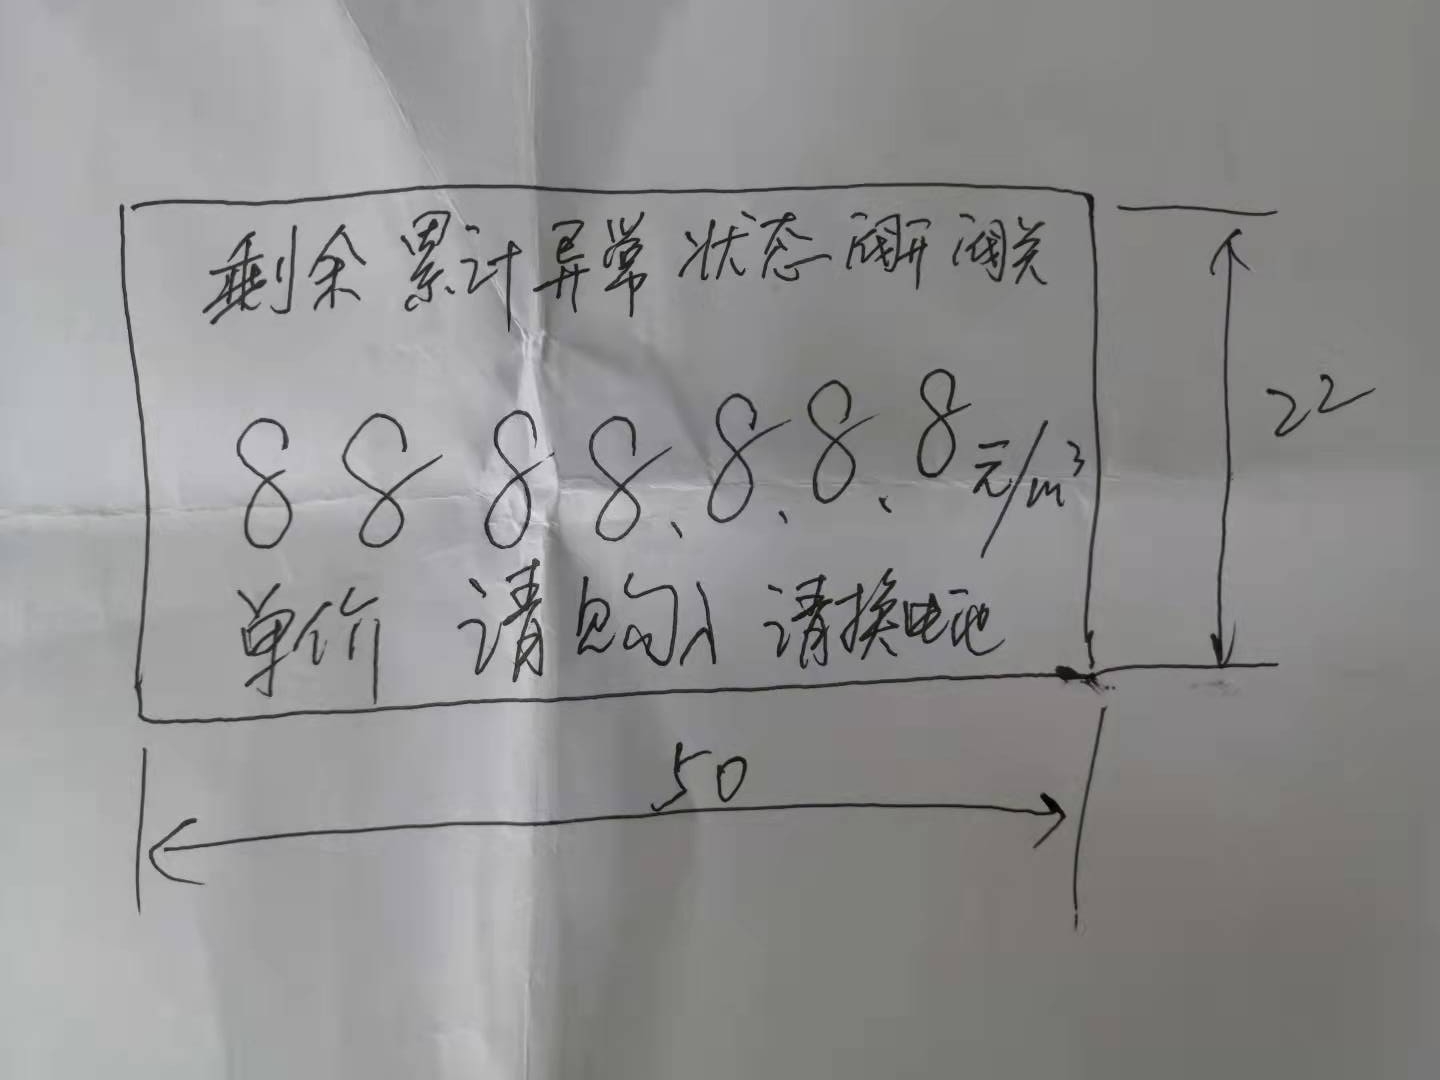 剩余 累计 异常 状态 阀开 阀关
8 8 8 8.8.8.8元/m³
单价 请购入 请换电池
22
50